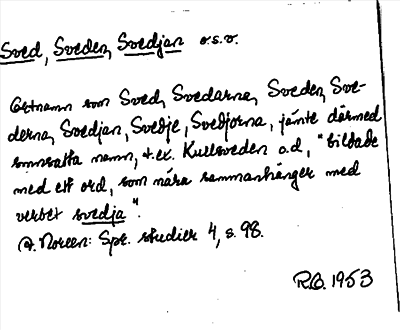 Sved, Sveden, Svedjan o.s.v.
Ortnamn som Sved, Svedarna, Sveden, Sve-
derna, Svedjan, Svedje, Svedjorna, jämte därmed
smnsatta namn, t.ex. Kullsveden o.d., "bildade
med ett ord, som nära sammanhänger med
verbet svedja".
A. Noreen: Spr. studier 4, s. 98.
R.B. 1953